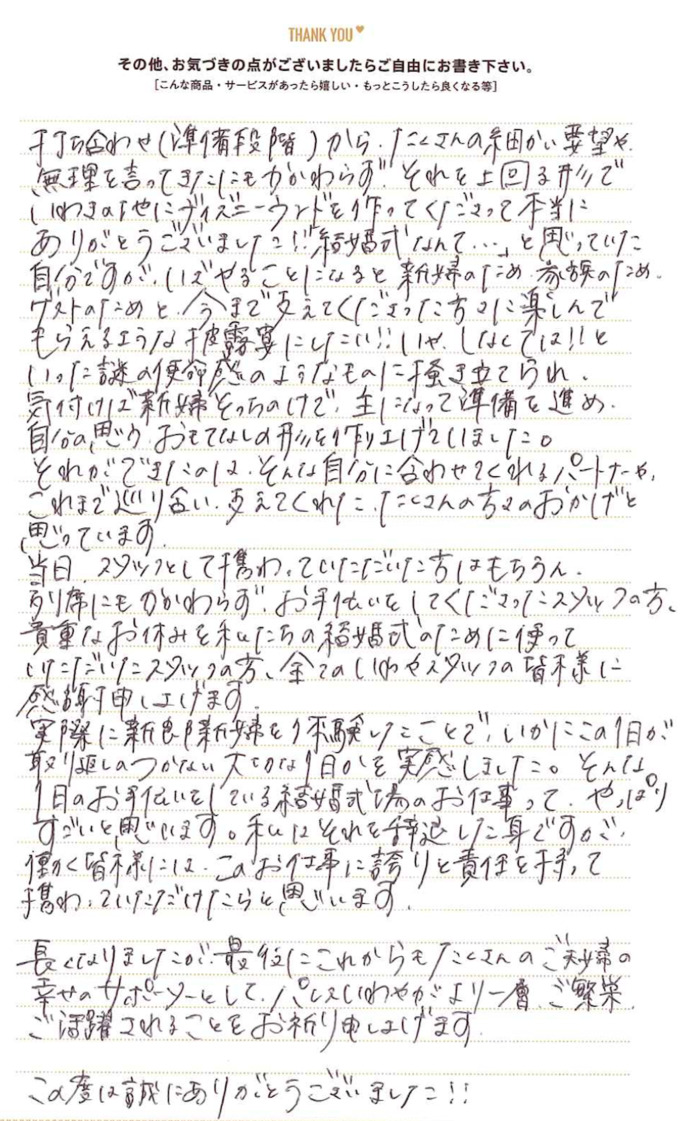 THANK YOU
その他、お気づきの点がございましたらご自由にお書き下さい。
[こんな商品・サービスがあったら嬉しい・もっとこうしたら良くなる等]
打ち合わせ(準備段階)から、たくさんの細かい要望や、
無理を言ってきたにもかかわらず、それを上回る形で
いわきの地にディズニーランドを作ってくださって本当に
ありがとうございました!!「結婚式なんて…」と思っていた
自分ですが、いざやることになると新婦のため、家族のため、
ゲストのためと、今まで支えてくださった方々に楽しんで
もらえるような披露宴にしたい!!いや、しなくては!!と
いった謎の使命感のようなものに掻き立てられ、
気付けば新婦そっちのけで、主になって準備を進め、
自分の思う、おもてなしの形を作り上げていました。
それができたのは、そんな自分に合わせてくれるパートナーや、
これまで巡り合い、支えてくれた、たくさんの方々のおかげと
思っています。
当日、スタッフとして携わっていただいた方はもちろん、
列席にもかかわらず、お手伝いをしてくださったスタッフの方、
貴重なお休みを私たちの結婚式のために使って
いただいたスタッフの方、全てのいわやスタッフの皆様に
感謝申し上げます。
実際に新郎新婦を体験したことで、いかにこの1日が
取り返しのつかない大切な1日かを実感しました。そんな
1日のお手伝いをしている結婚式場のお仕事って、やっぱり
すごいと思います。私はそれを辞退した身ですが、
働く皆様には、このお仕事に誇りと責任を持って
携わっていただけたらと思います。
長くなりましたが、最後にこれからもたくさんのご夫婦の
幸せのサポーターとして、パレスいわやがより一層、ご繁栄、
ご活躍されることをお祈り申し上げます。
この度は誠にありがとうございました!!